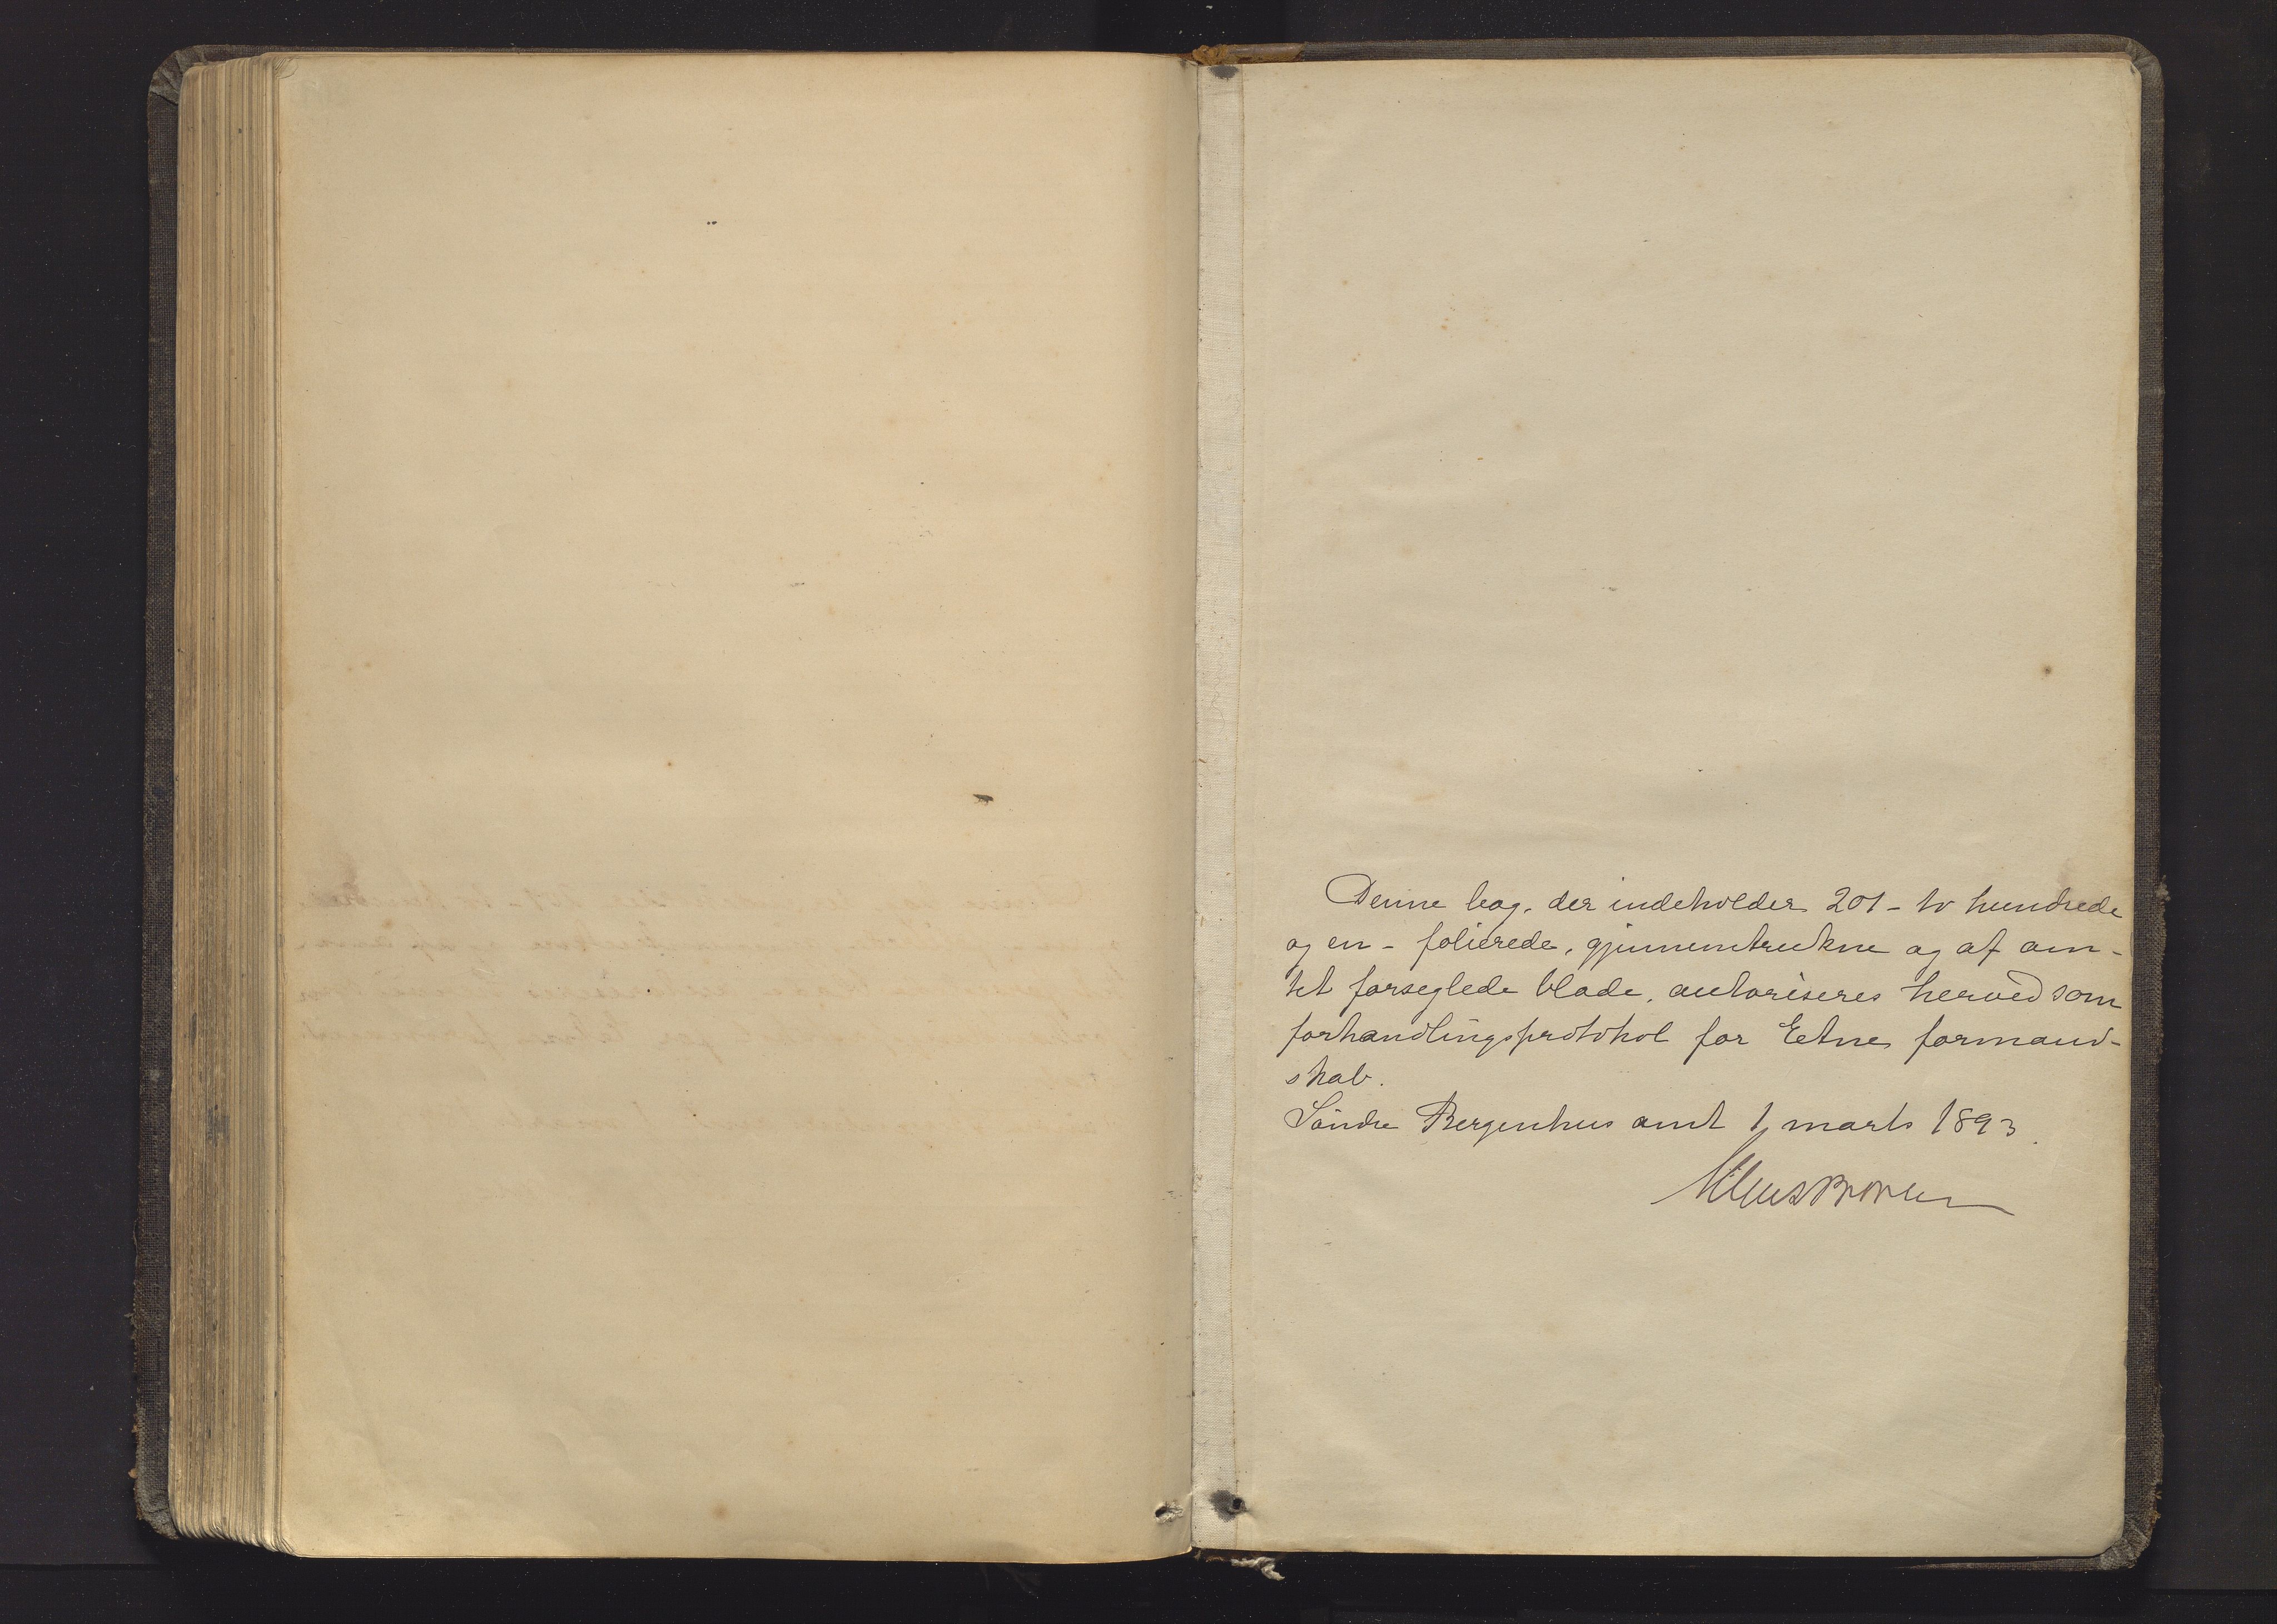 Denne bog, der indeholder 201 - to hundrede
og en - folierede, gjennemtrukne og af am-
tet forseglede blade, autoriseres herved som
forhandlingsprotokol for Etne formand-
skab.
Søndre Bergenhus amt 1 marts 1893.